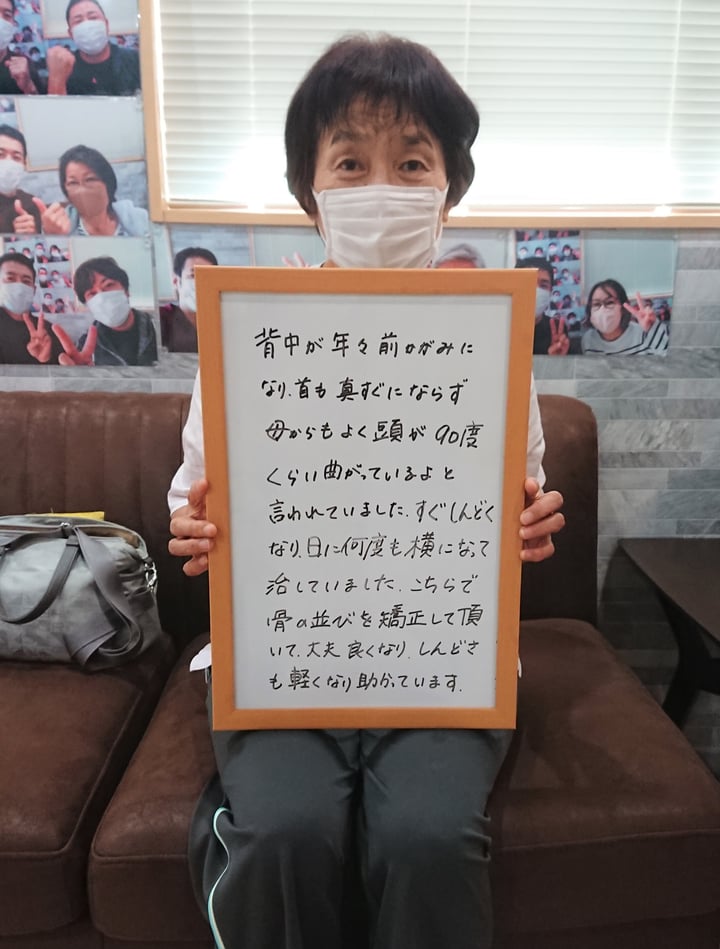 背中が年々前かがみに
なり、首も真すぐにならず
母からもよく頭が90度
くらい曲がっているよと
言われていました。すぐしんどく
なり、日に何度も横になって
治していました。こちらで
骨の並びを矯正して頂
いて、丈夫良くなり、しんどさ
も軽くなり助かっています。